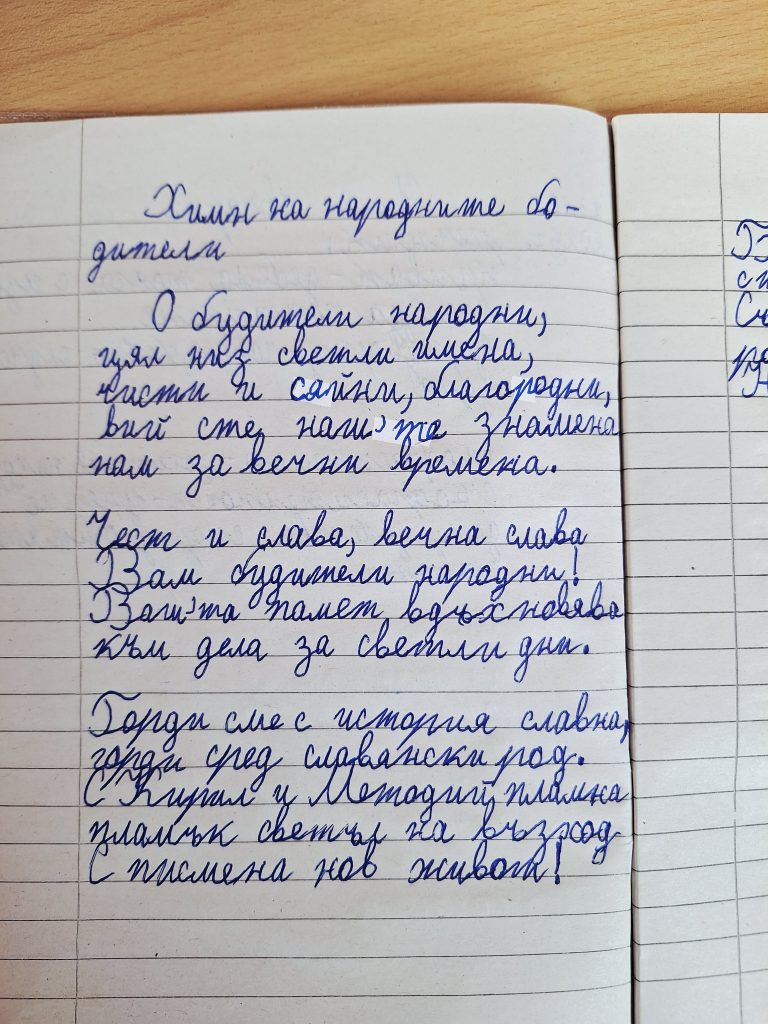 Химн на народните бо-
дители
О будители народни,
цял низ светли имена,
чисти и сайни, благородни,
вий сте наш'те знамена
нам за вечни времена.
Чест и слава, вечна слава
Вам будители народни!
Ваш'та памет вдъхновява
към дела за светли дни.
Горди сме с история славна,
горди сред славянски род.
С Кирил и Методий, пламна
пламък светъл на възход
С писмена нов живот!